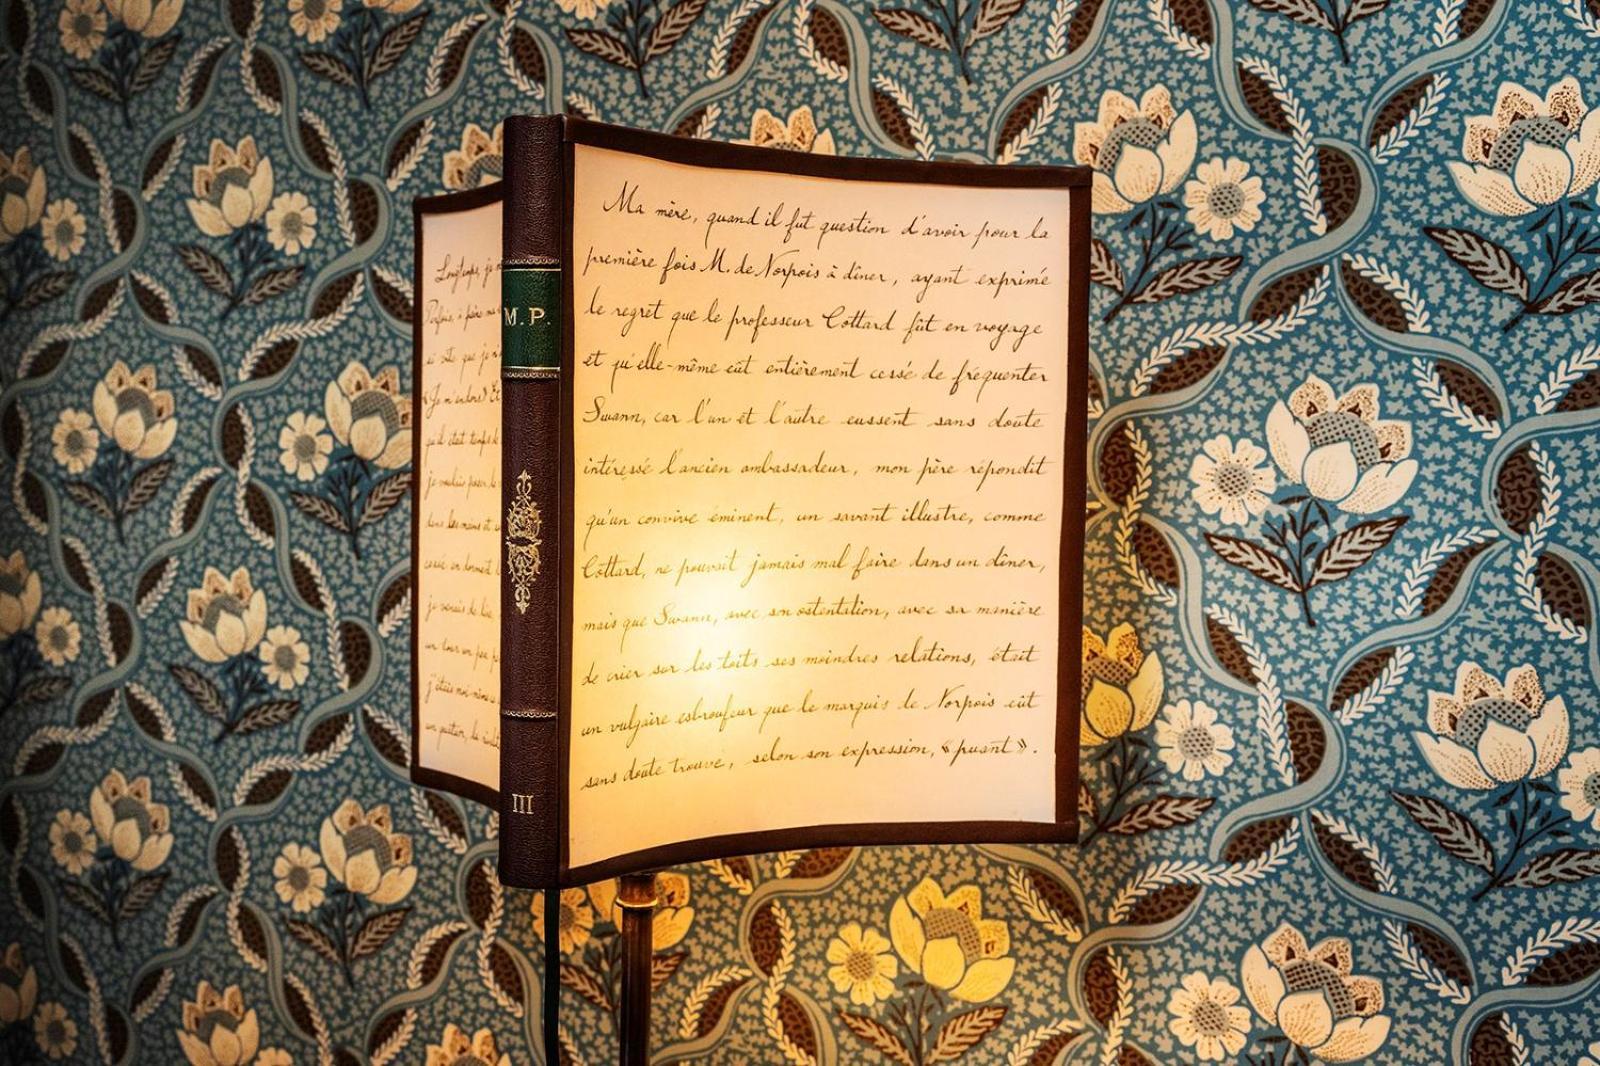 Longtemps, je
Parfois, à peine ma
si vite que je n
«Je m'endors» Et
qu'il était temps de
je voulais poser le
dans les mains et
cessé en dormant
je venais de lire,
un tour un peu p
j'étais moi-même
un quatuor, la rivalit
M.P.
III
Ma mère, quand il fut question d'avoir pour la
première fois M. de Norpois à dîner, ayant exprimé
le regret que le professeur Cottard fût en voyage
et qu'elle-même eût entièrement cessé de fréquenter
Swann, car l'un et l'autre eussent sans doute
intéressé l'ancien ambassadeur, mon père répondit
qu'un convive éminent, un savant illustre, comme
Cottard, ne pouvait jamais mal faire dans un dîner,
mais que Swann, avec son ostentation, avec sa manière
de crier sur les toits ses moindres relations, était
un vulgaire esbroufeur que le marquis de Norpois eût
sans doute trouvé, selon son expression, «puant».